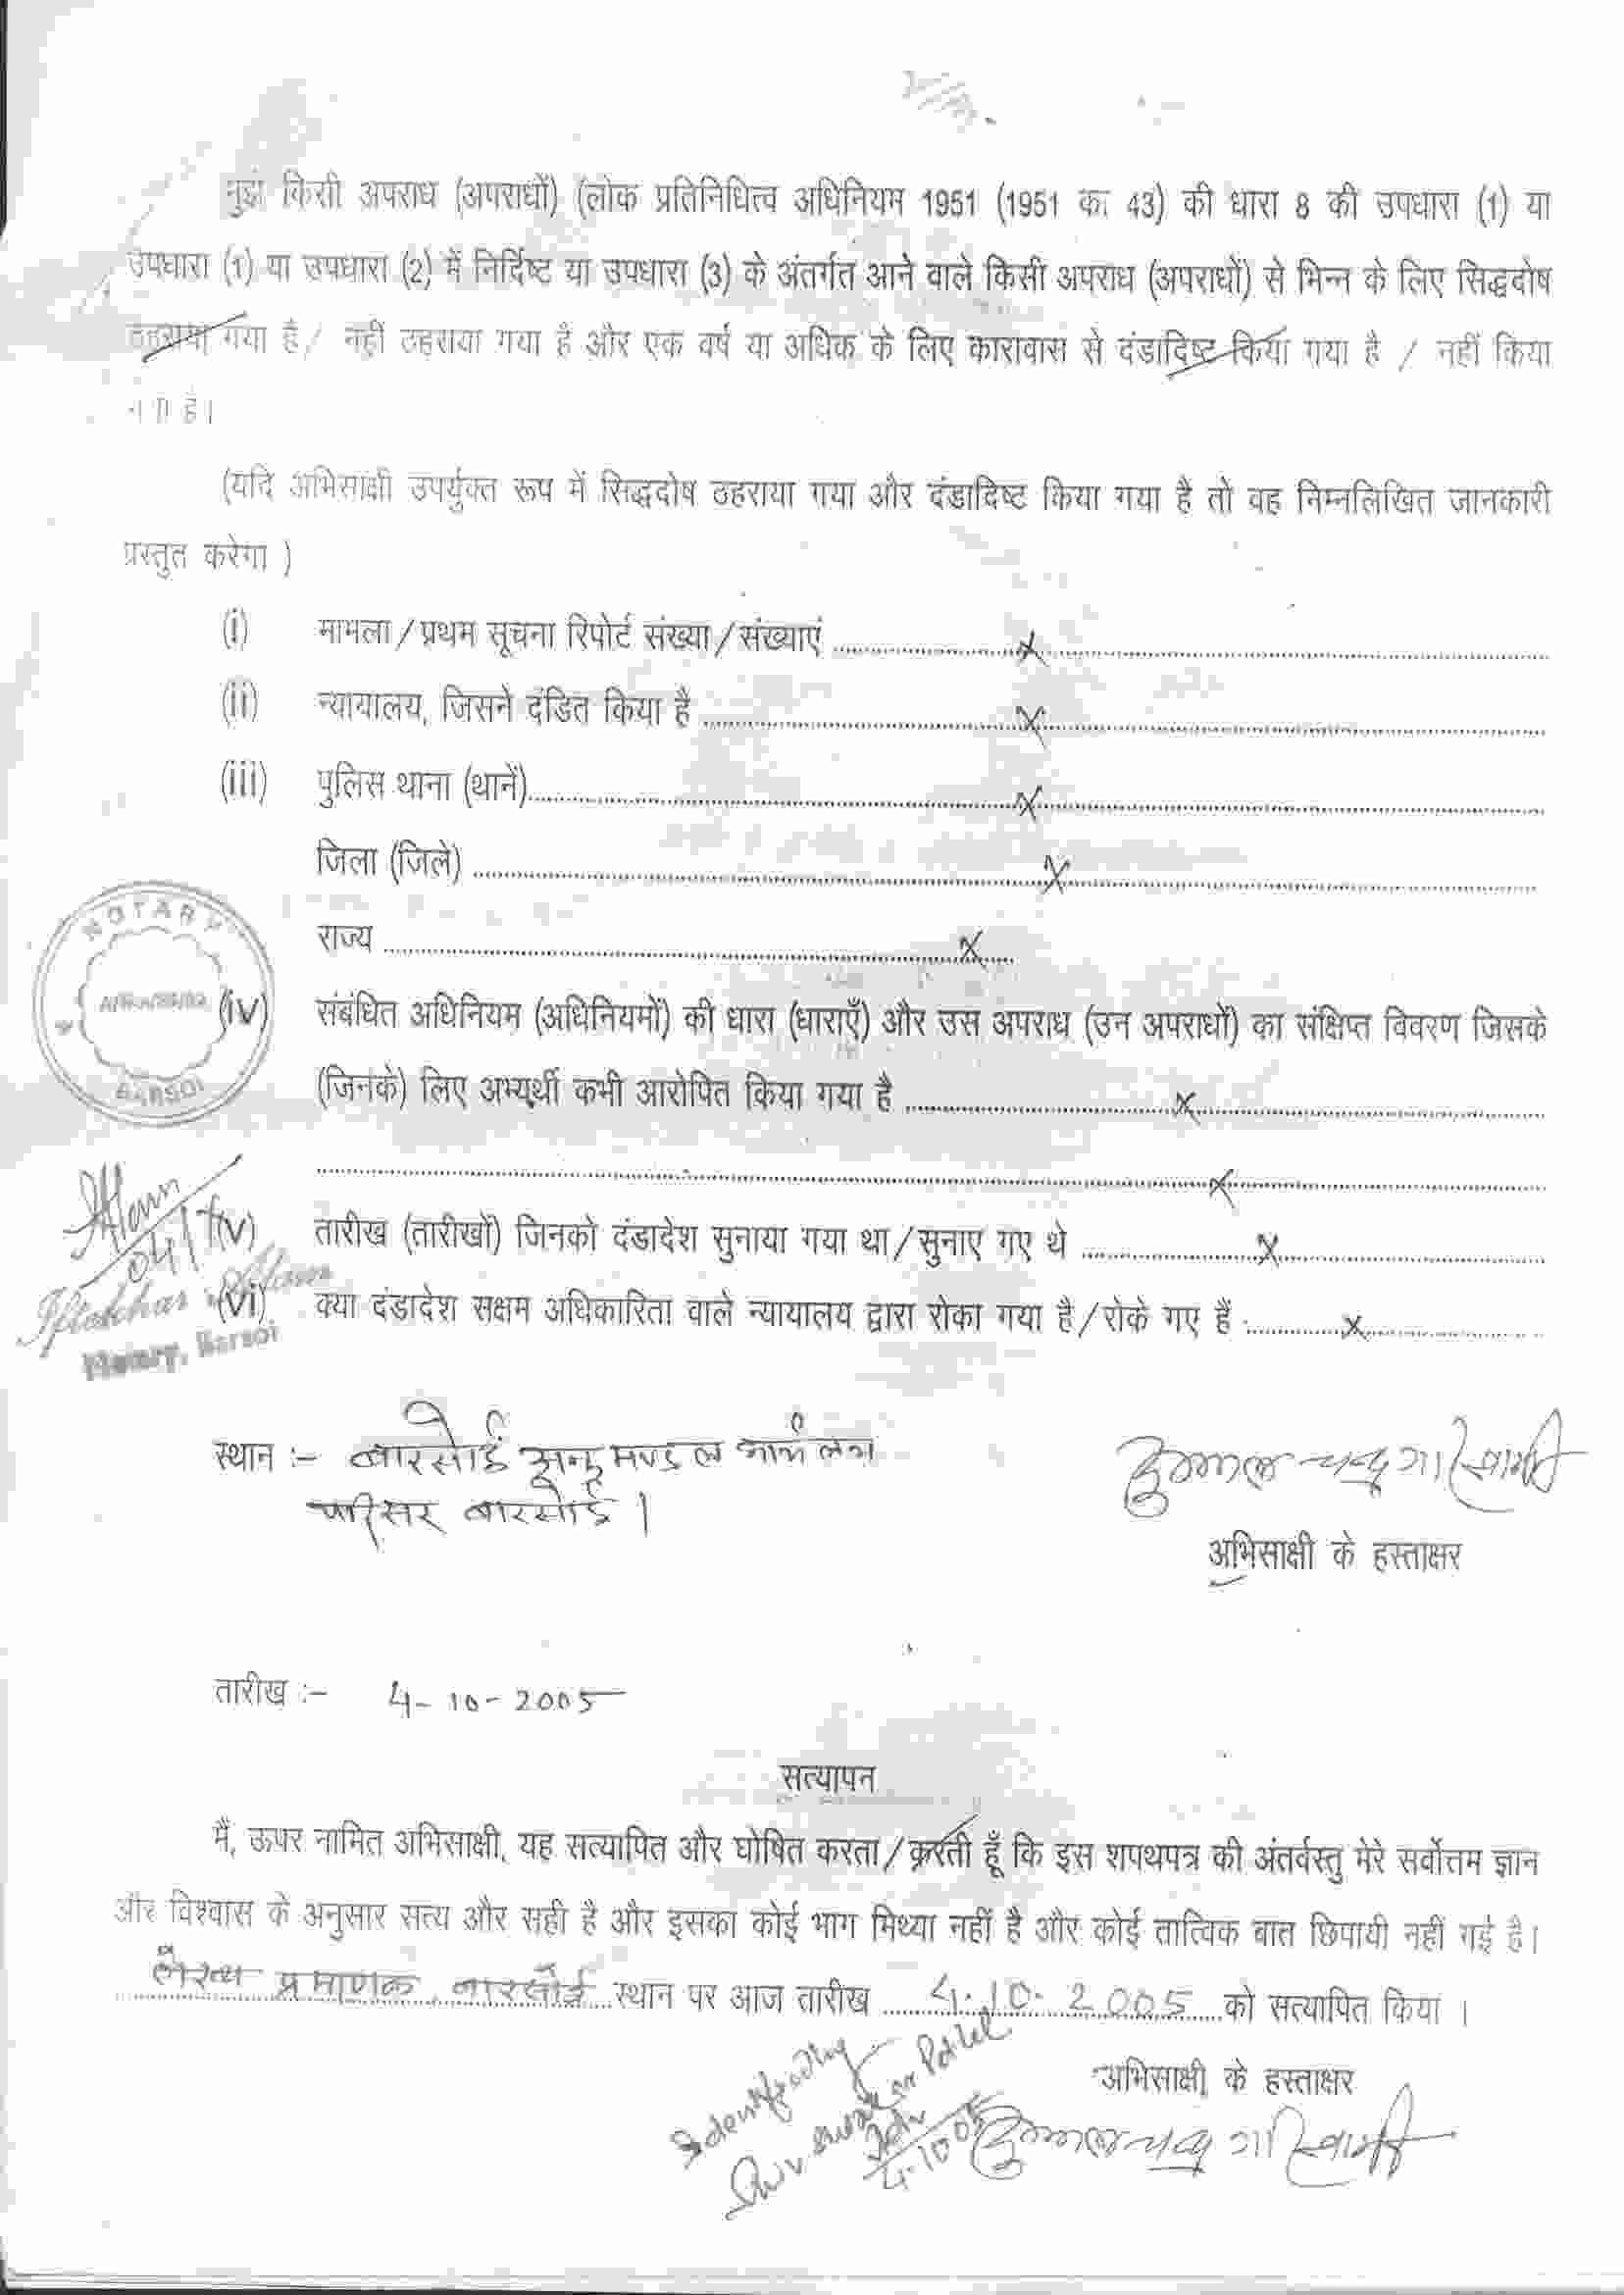 मुझे किसी अपराध (अपराधों) (लोक प्रतिनिधित्व अधिनियम 1951 (1951 का 43) की धारा 8 की उपधारा (1) या
उपधारा (1) या उपधारा (2) में निर्दिष्ट या उपधारा (3) के अंतर्गत आने वाले किसी अपराध (अपराधों) से भिन्न के लिए सिद्धदोष
ठहराया गया है / नहीं ठहराया गया है और एक वर्ष या अधिक के लिए कारावास से दंडादिष्ट किया गया है / नहीं किया
गया है।
(यदि अभिसाक्षी उपर्युक्त रूप में सिद्धदोष ठहराया गया और दंडादिष्ट किया गया है तो वह निम्नलिखित जानकारी
प्रस्तुत करेगा )
(i) मामला / प्रथम सूचना रिपोर्ट संख्या / संख्याएं ........ x ........
(ii) न्यायालय, जिसने दंडित किया है ........ x ........
(iii) पुलिस थाना (थानें) ........ x ........
जिला (जिले) ........ x ........
राज्य ........ x ........
NOTARY
(iv) संबंधित अधिनियम (अधिनियमों) की धारा (धाराएँ) और उस अपराध (उन अपराधों) का संक्षिप्त विवरण जिसके
(जिनके) लिए अभ्यर्थी कभी आरोपित किया गया है ........ x ........
BARSOI
........ x ........
(v) तारीख (तारीखों) जिनको दंडादेश सुनाया गया था / सुनाए गए थे ........ x ........
(vi) क्या दंडादेश सक्षम अधिकारिता वाले न्यायालय द्वारा रोका गया है / रोके गए हैं ........ x ........
Notary, Barsoi
स्थान :- बारसोई अनुमण्डल
परिसर बारसोई ।
अभिसाक्षी के हस्ताक्षर
तारीख :- 4-10-2005
सत्यापन
मैं, ऊपर नामित अभिसाक्षी, यह सत्यापित और घोषित करता / करती हूँ कि इस शपथपत्र की अंतर्वस्तु मेरे सर्वोत्तम ज्ञान
और विश्वास के अनुसार सत्य और सही है और इसका कोई भाग मिथ्या नहीं है और कोई तात्विक बात छिपायी नहीं गई है।
लेख्य प्रमाणक, बारसोई स्थान पर आज तारीख 4.10.2005 को सत्यापित किया ।
अभिसाक्षी के हस्ताक्षर
4.10.05